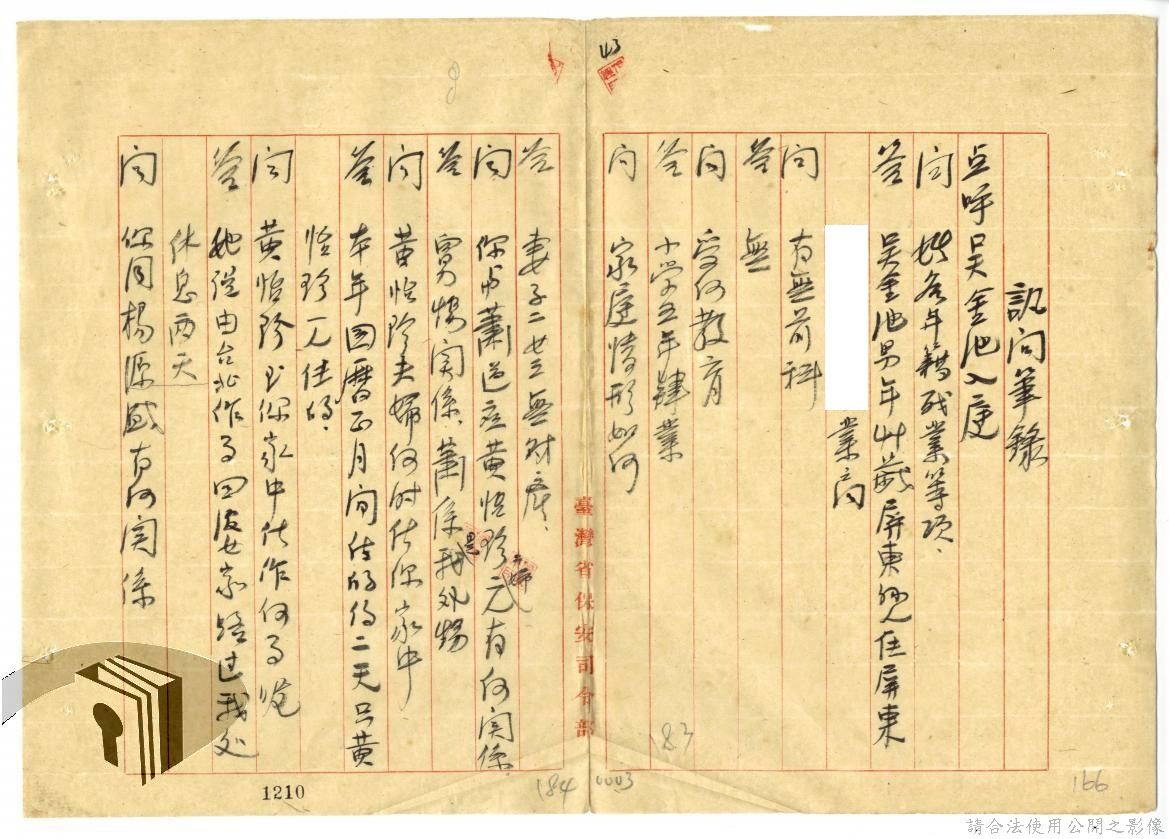 43
訊問筆錄
点呼吴金池入庭
问 姓名年籍职業等項、
答 吴金池男年卅歲屏東縣人住屏東
業商
问 有無前科
答 無
问 受何教育
答 小学五年肄業
问 家庭情形如何
臺灣省保安司令部
答 妻子二女三無財產、
问 你与蕭道应黄怡珍夫婦有何関係、
答 舅甥関係、蕭係我外甥
问 黄怡珍夫婦何时住你家中
答 本年国曆正月间住的約二天只黄
怡珍一人住的、
问 黄怡珍到你家中住作何事呢
答 她從由台北作事回後女家路过我处
休息两天
问 你同楊源盛有何関係
83
184
0003
166
1210
請合法使用公開之影像